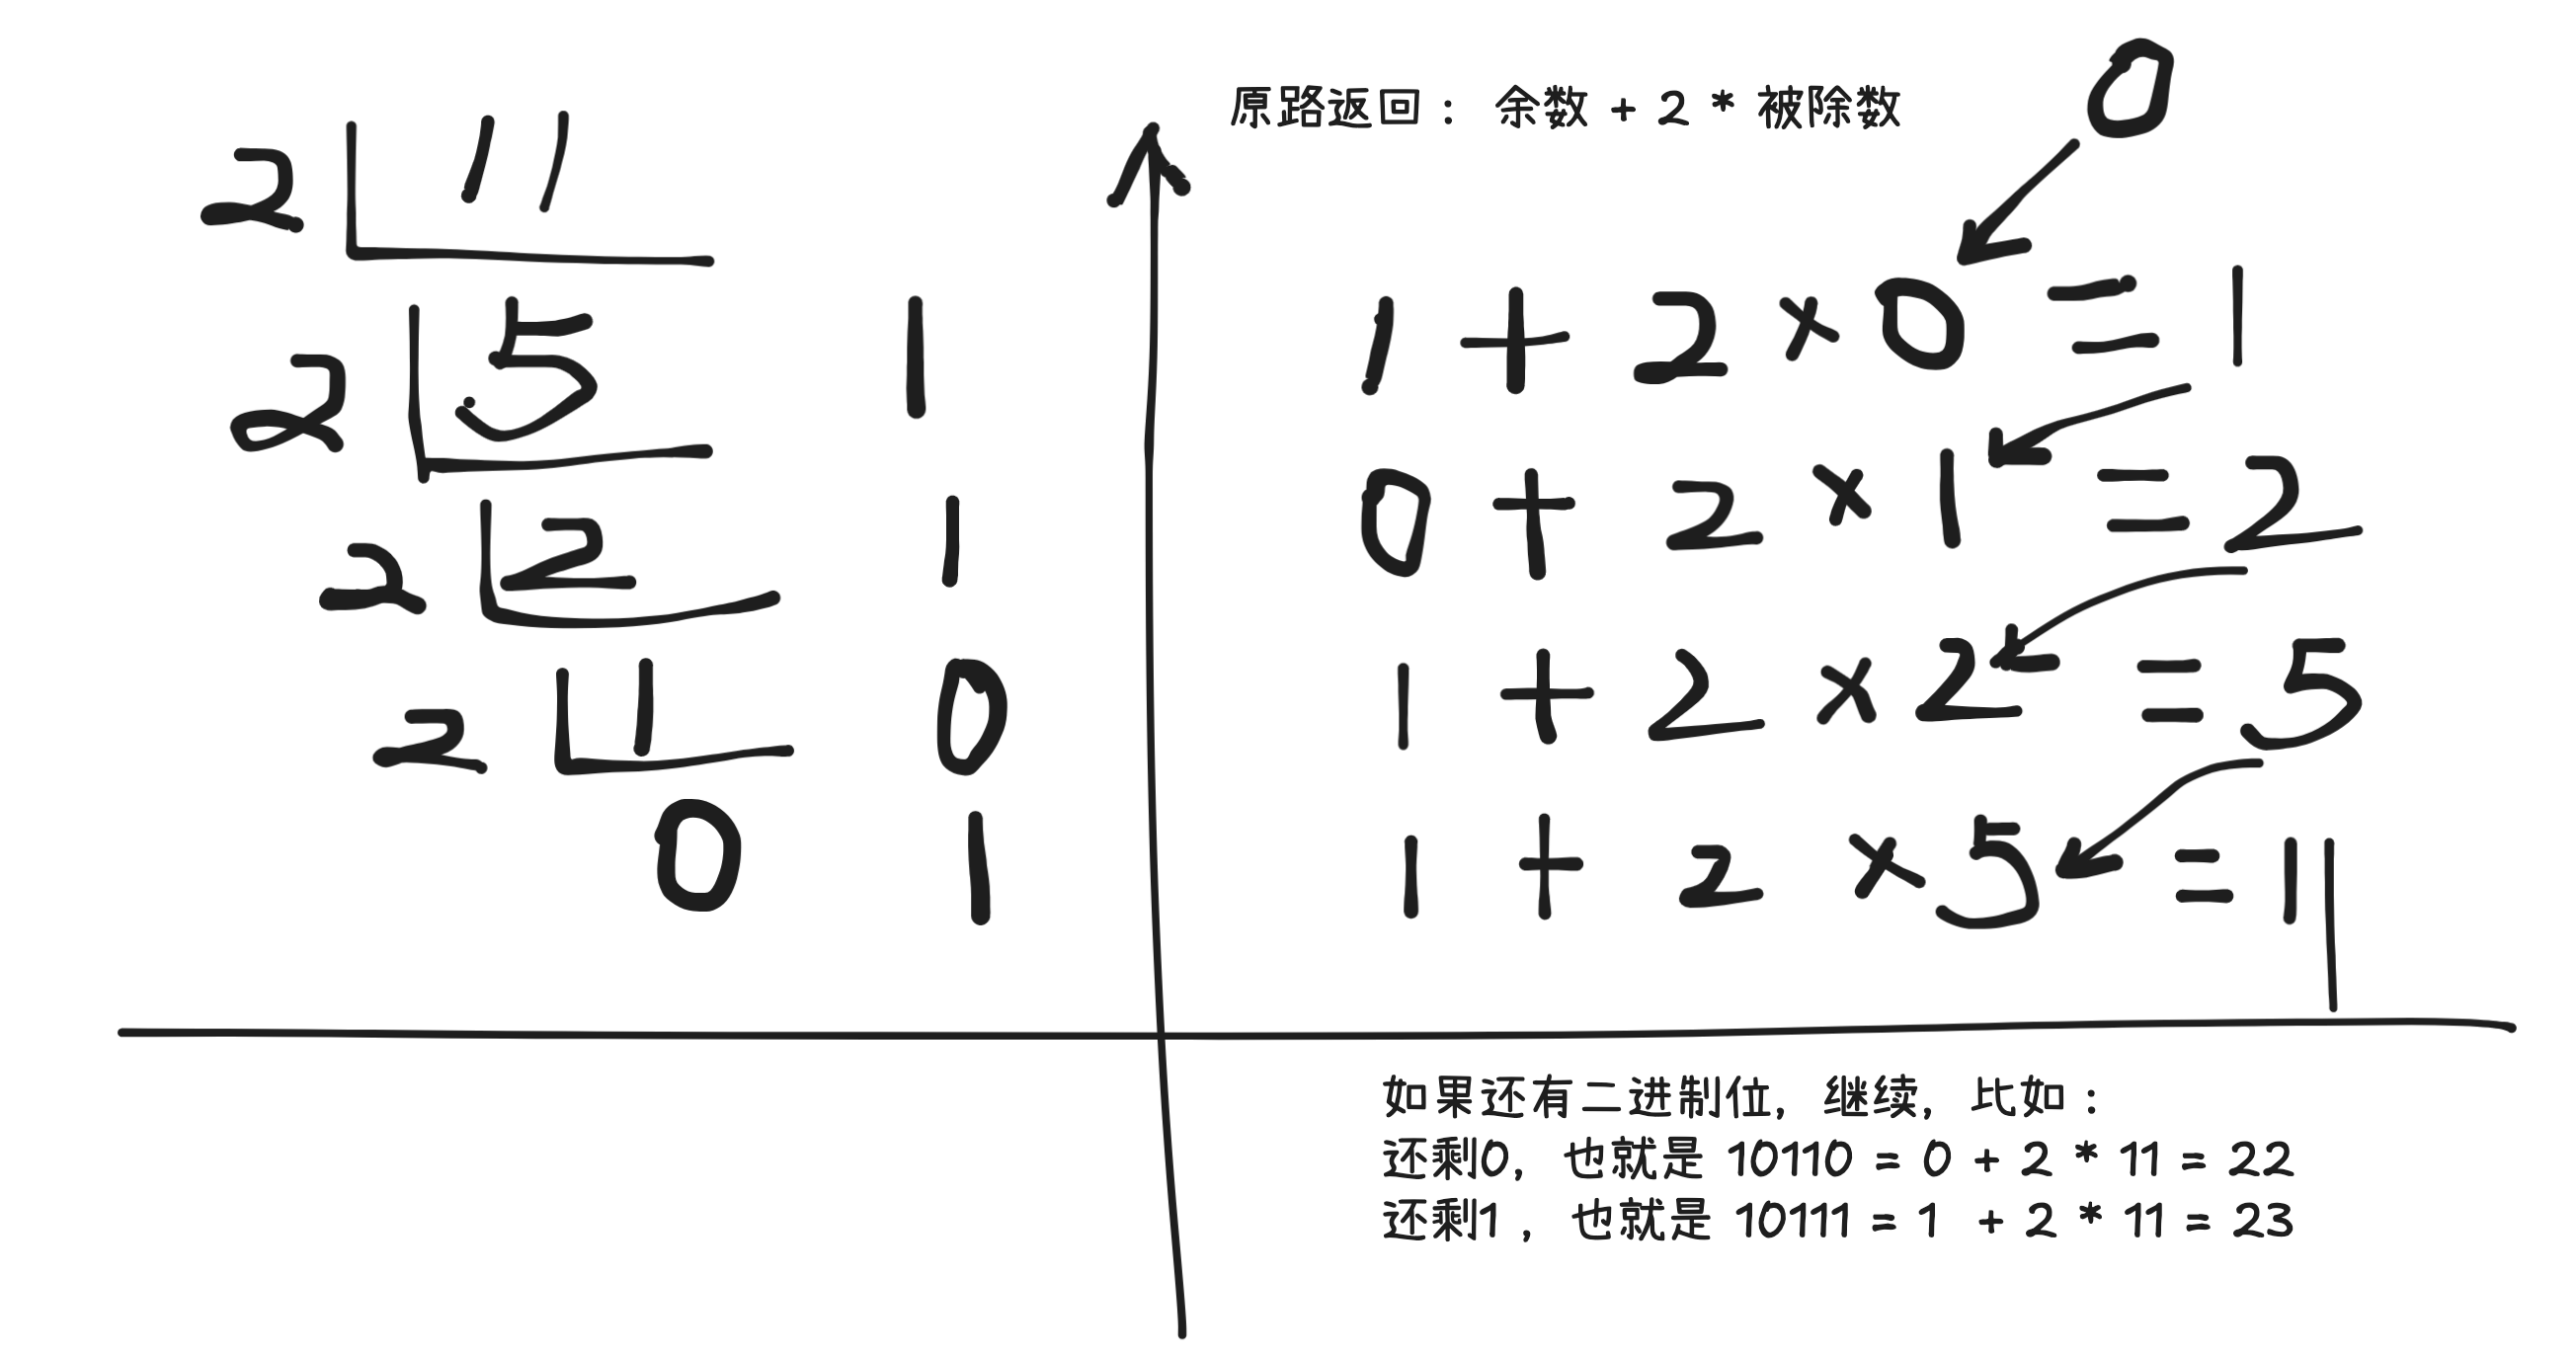 2 11
2 5 1
2 2 1
2 1 0
0 1
原路返回： 余数 + 2 * 被除数
0
1 + 2 × 0 = 1
0 + 2 × 1 = 2
1 + 2 × 2 = 5
1 + 2 × 5 = 11
如果还有二进制位，继续，比如：
还剩0，也就是 10110 = 0 + 2 * 11 = 22
还剩1 ，也就是 10111 = 1 + 2 * 11 = 23